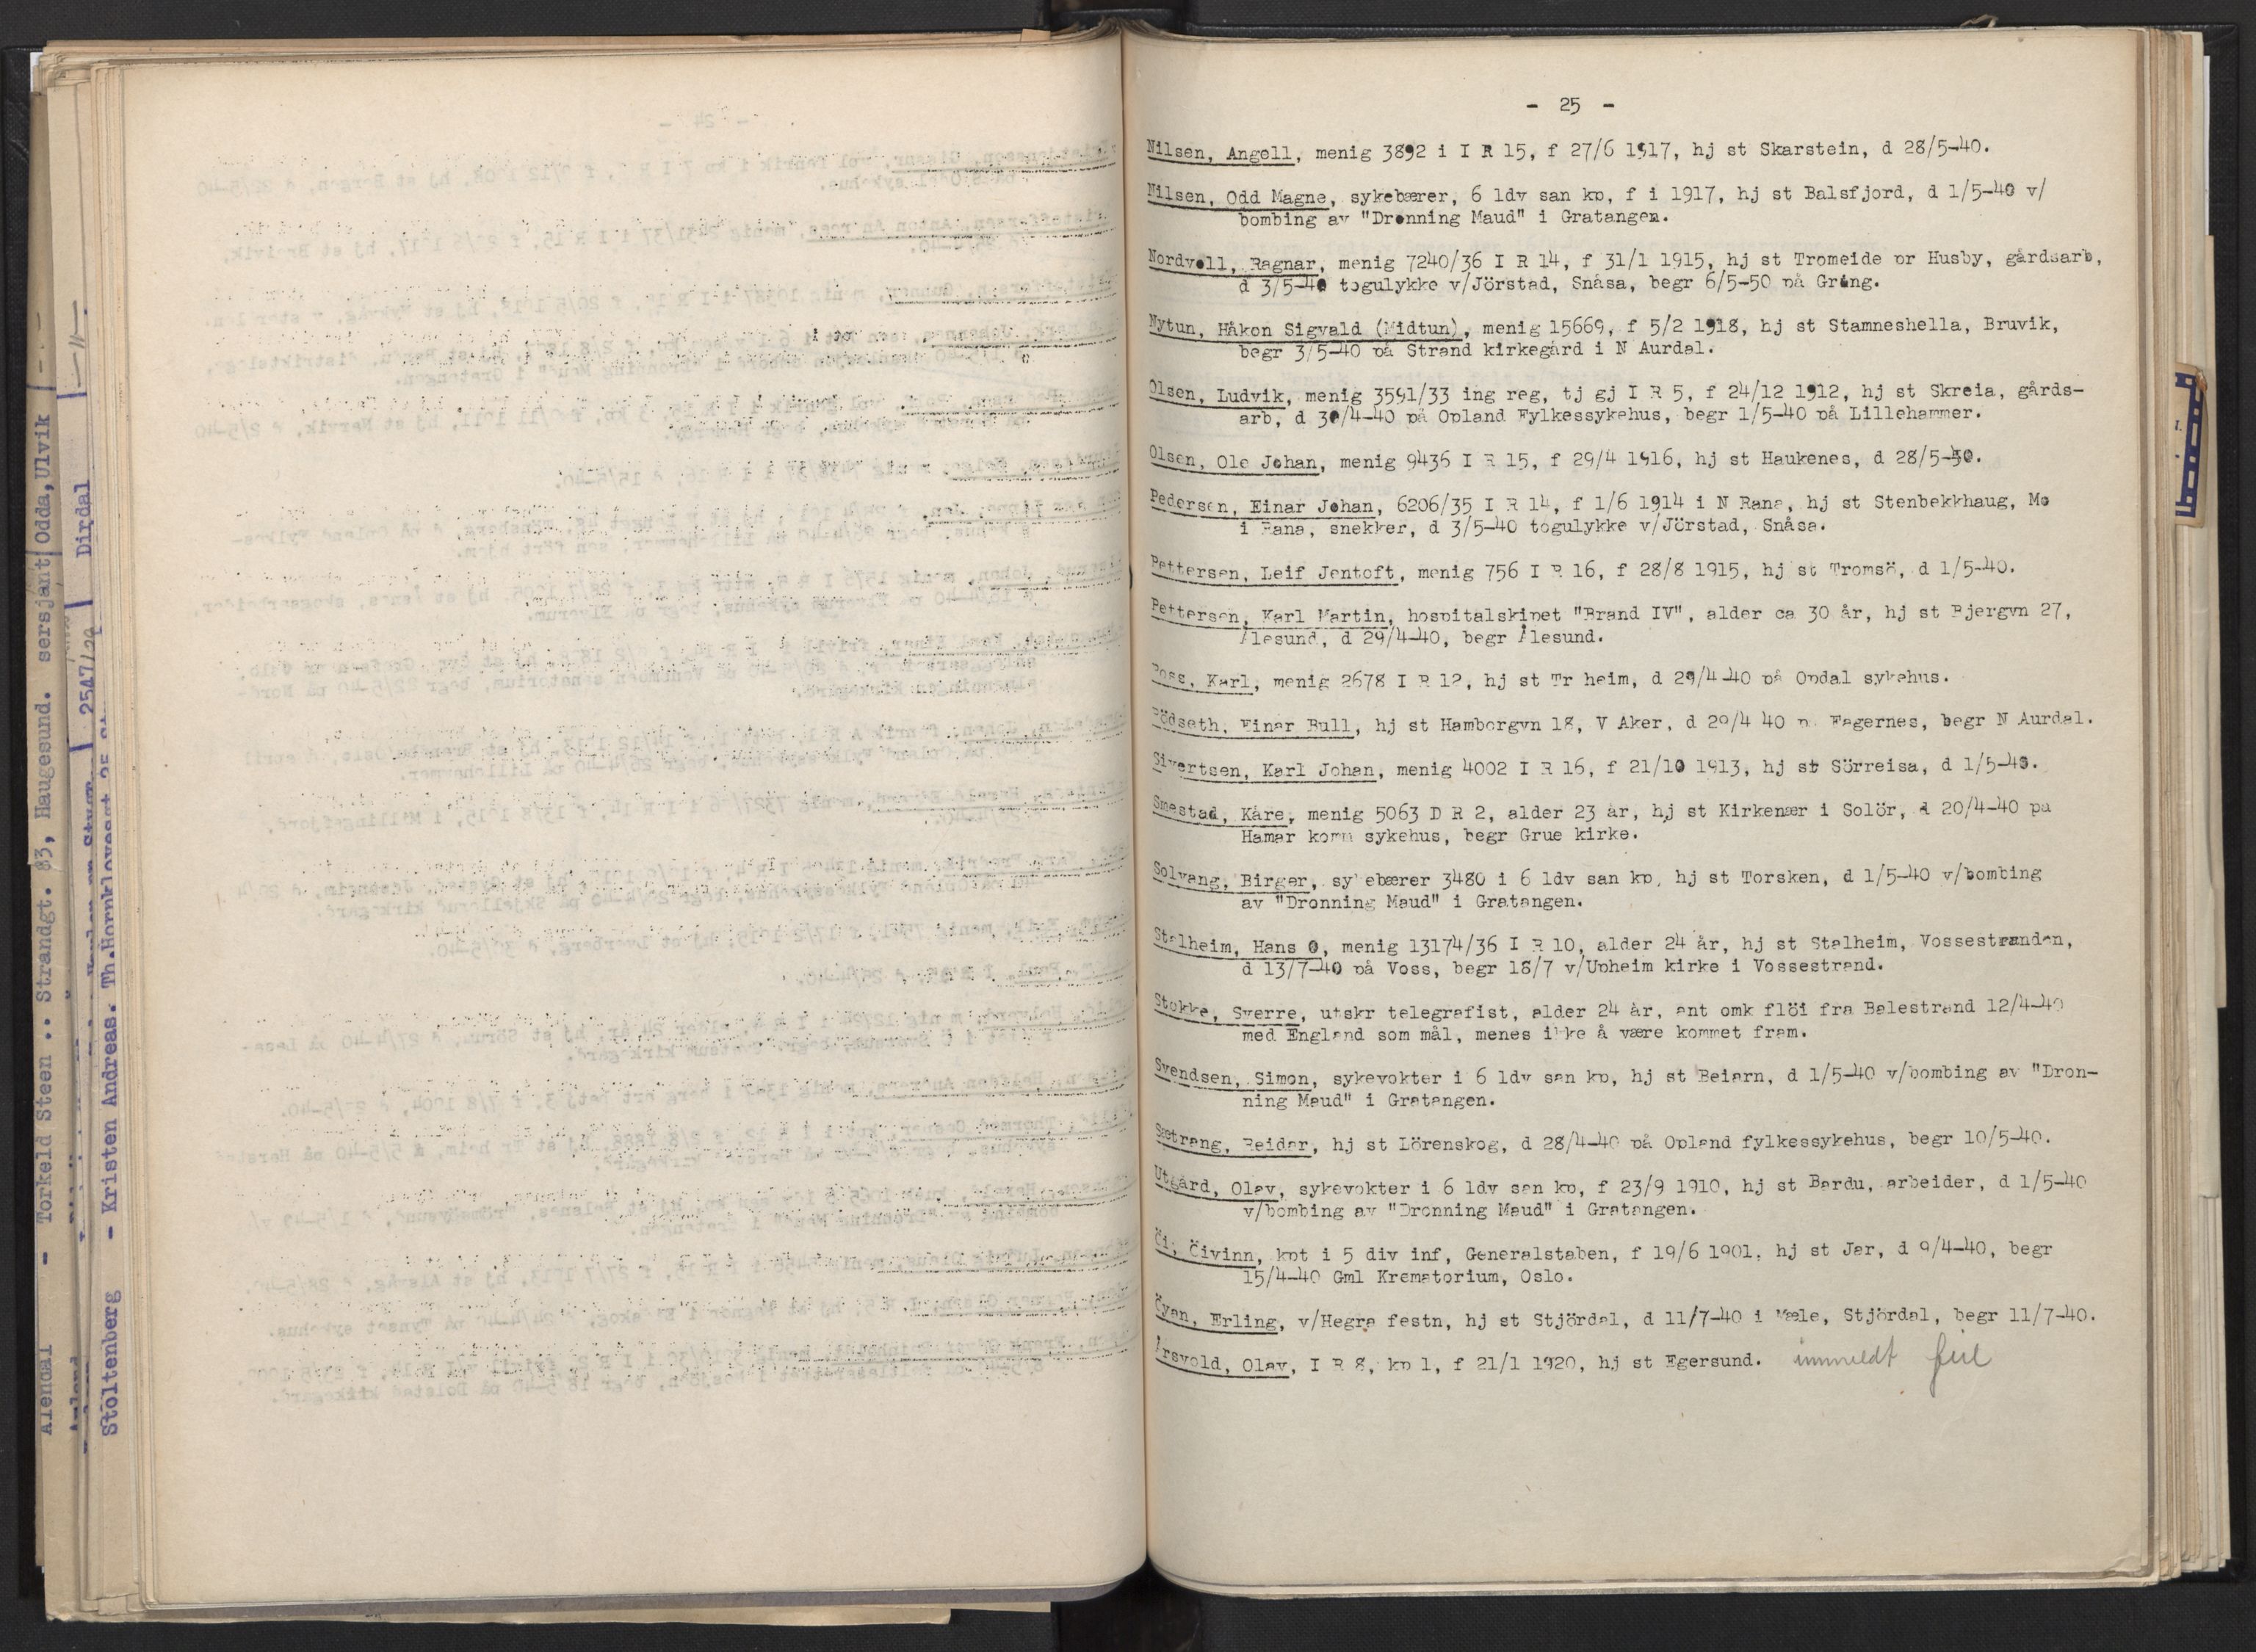 - 25 -
Nilsen, Angell, menig 3892 i I R 15, f 27/6 1917, hj st Skarstein, d 28/5-40.
Nilsen, Odd Magne, sykebærer, 6 ldv san kp, f i 1917, hj st Balsfjord, d 1/5-40 v/
bombing av "Dronning Maud" i Gratangen.
Nordvoll, Ragnar, menig 7240/36 I R 14, f 31/1 1915, hj st Tromeide pr Husby, gårdsarb,
d 3/5-40 togulykke v/Jörstad, Snåsa, begr 6/5-50 på Grong.
Nytun, Håkon Sigvald (Midtun), menig 15669, f 5/2 1918, hj st Stamneshella, Bruvik,
begr 3/5-40 på Strand kirkegård i N Aurdal.
Olsen, Ludvik, menig 3591/33 ing reg, tj gj I R 5, f 24/12 1912, hj st Skreia, gårds-
arb, d 30/4-40 på Opland Fylkessykehus, begr 1/5-40 på Lillehammer.
Olsen, Ole Johan, menig 9436 I R 15, f 29/4 1916, hj st Haukenes, d 28/5-50.
Pedersen, Einar Johan, 6206/35 I R 14, f 1/6 1914 i N Rana, hj st Stenbekkhaug, Mo
i Rana, snekker, d 3/5-40 togulykke v/Jörstad, Snåsa.
Pettersen, Leif Jentoft, menig 756 I R 16, f 28/8 1915, hj st Tromsö, d 1/5-40.
Pettersen, Karl Martin, hospitalskipet "Brand IV", alder ca 30 år, hj st Bjergvn 27,
Ålesund, d 29/4-40, begr Ålesund.
Poss, Karl, menig 2678 I R 12, hj st Tr heim, d 29/4-40 på Opdal sykehus.
Rödseth, Einar Bull, hj st Hamborgvn 18, V Aker, d 29/4 40 p Fagernes, begr N Aurdal.
Sivertsen, Karl Johan, menig 4002 I R 16, f 21/10 1913, hj st Sörreisa, d 1/5-40.
Smestad, Kåre, menig 5063 D R 2, alder 23 år, hj st Kirkenær i Solör, d 20/4-40 på
Hamar komm sykehus, begr Grue kirke.
Solvang, Birger, sykebærer 3480 i 6 ldv san kp, hj st Torsken, d 1/5-40 v/bombing
av "Dronning Maud" i Gratangen.
Stalheim, Hans O, menig 13174/36 I R 10, alder 24 år, hj st Stalheim, Vossestranden,
d 13/7-40 på Voss, begr 18/7 v/Upheim kirke i Vossestrand.
Stokke, Sverre, utskr telegrafist, alder 24 år, ant omk flöi fra Balestrand 12/4-40
med England som mål, menes ikke å være kommet fram.
Svendsen, Simon, sykevokter i 6 ldv san kp, hj st Beiarn, d 1/5-40 v/bombing av "Dron-
ning Maud" i Gratangen.
Sætrang, Reidar, hj st Lörenskog, d 28/4-40 på Opland fylkessykehus, begr 10/5-40.
Utgård, Olav, sykevokter i 6 ldv san kp, f 23/9 1910, hj st Bardu, arbeider, d 1/5-40
v/bombing av "Dronning Maud" i Gratangen.
Öi, Öivinn, kpt i 5 div inf, Generalstaben, f 19/6 1901, hj st Jar, d 9/4-40, begr
15/4-40 Gml Krematorium, Oslo.
Öyan, Erling, v/Hegra festn, hj st Stjördal, d 11/7-40 i Mæle, Stjördal, begr 11/7-40.
Årsvold, Olav, I R 8, kp 1, f 21/1 1920, hj st Egersund. innmeldt feil
Alendal - Torkeld Steen .. Strandgt. 83, Haugesund. sersjant Odda, Ulvik
Dirdal
Stoltenberg - Kristen Andreas. Th.Hornklovesgt